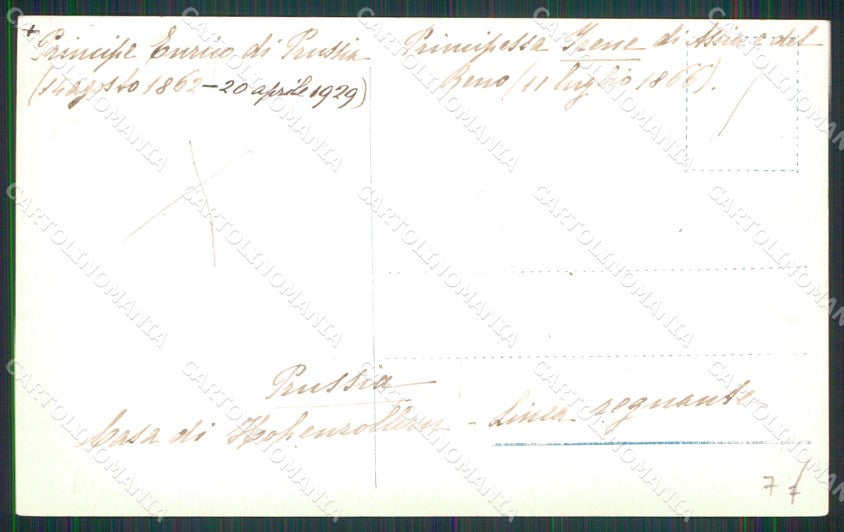 +
Principe Enrico di Prussia
(14 agosto 1862 – 20 aprile 1929)
Principessa Irene di Assia e del
Reno (11 luglio 1866).
Prussia
Casa di Hohenzollern - Linea regnante
77
CARTOLINOMANIA